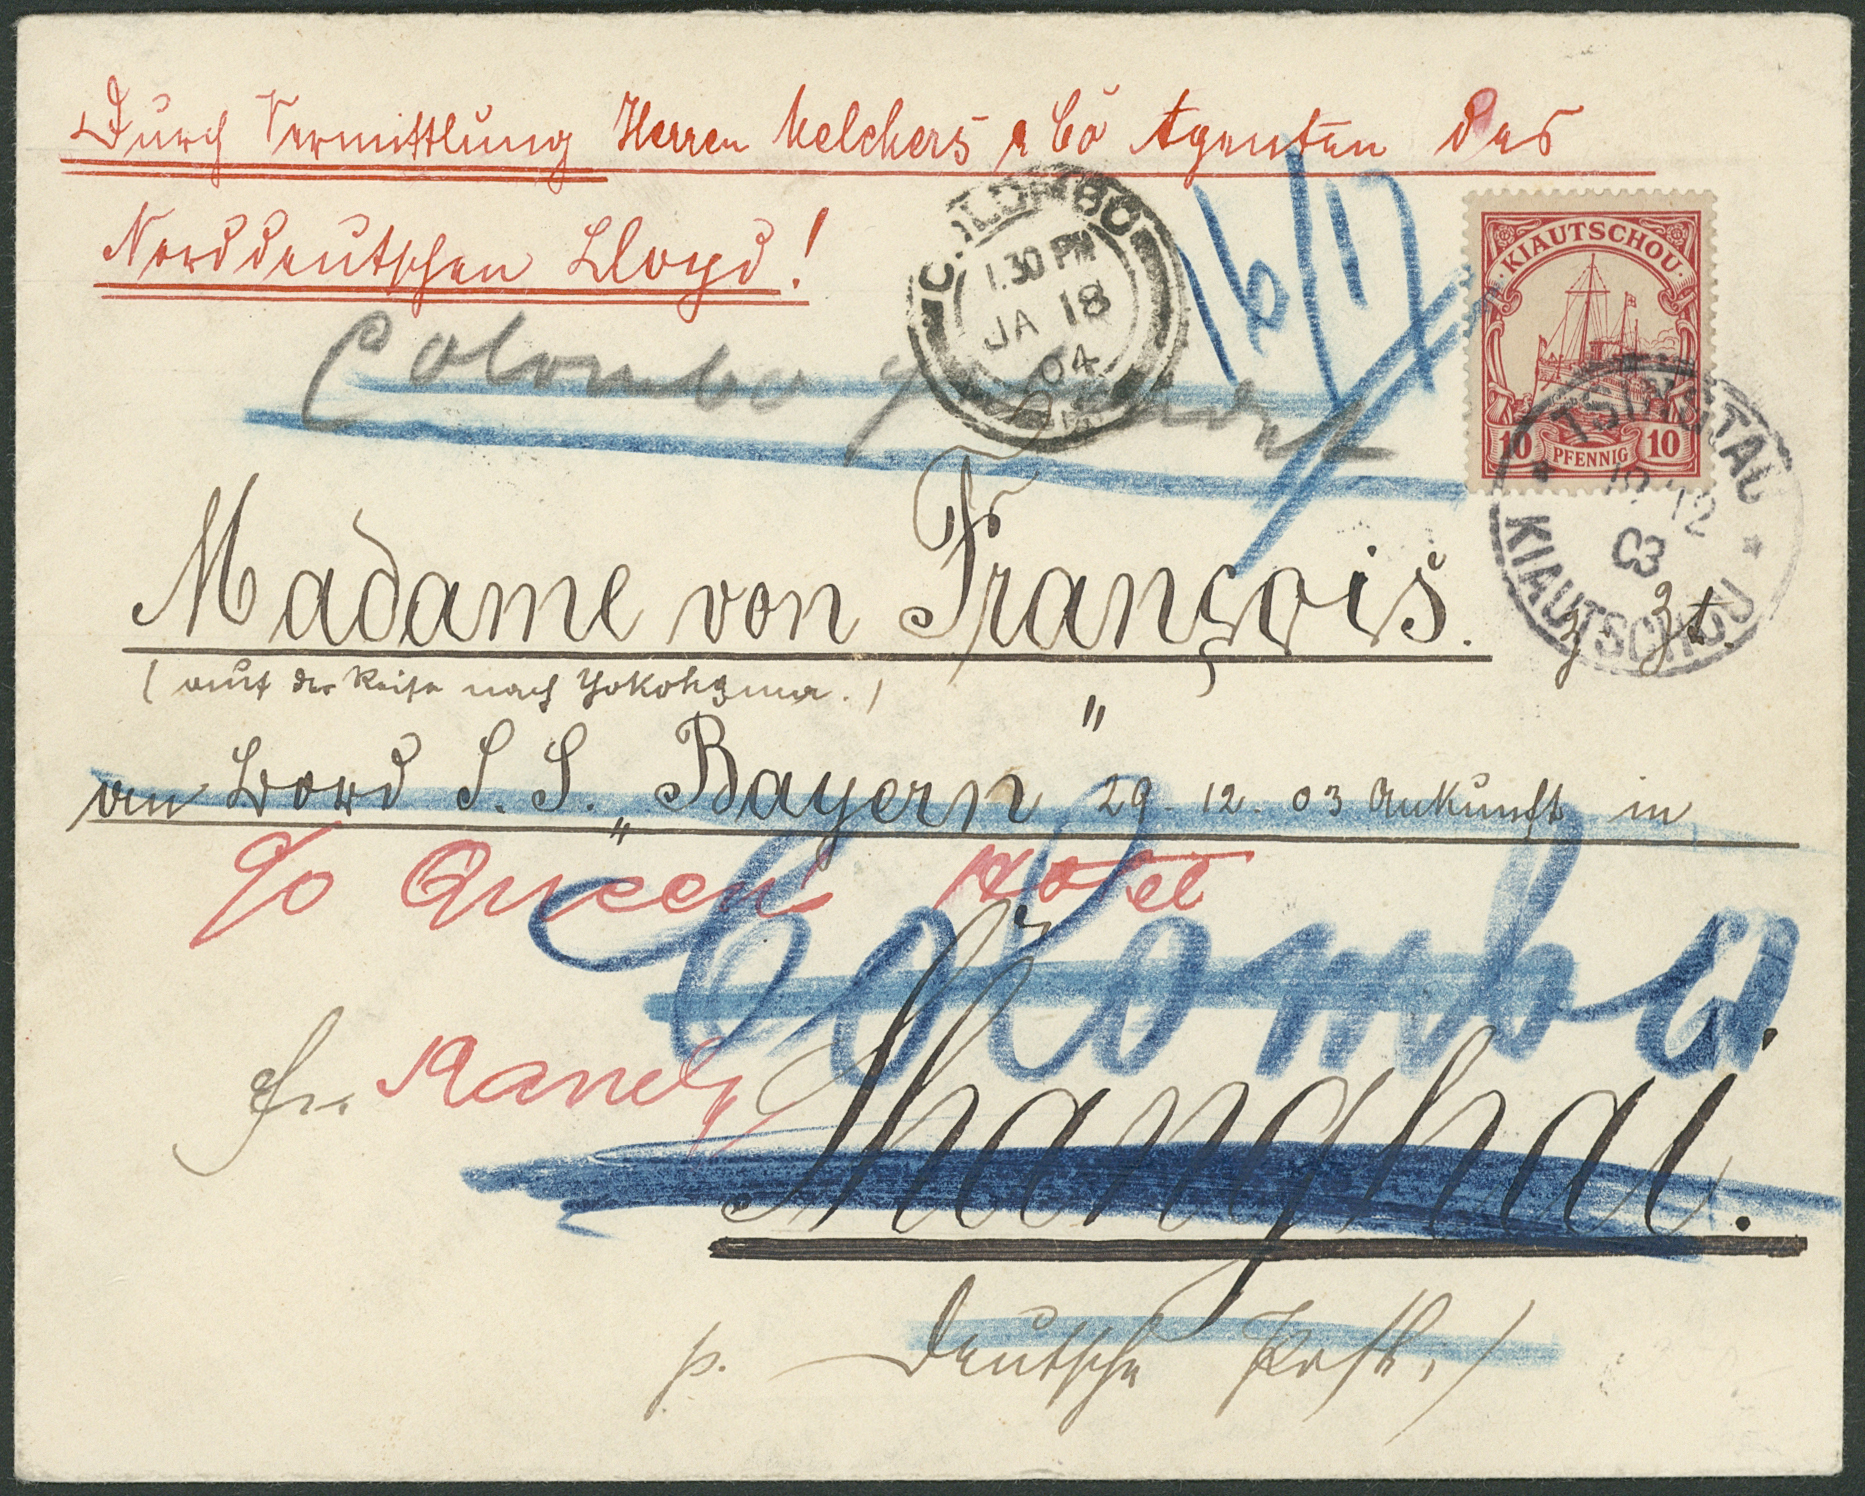 Durch Vermittlung Herren Melchers & Co Agenten des
Norddeutschen Lloyd!
COLOMBO
1.30 PM
JA 18
04
16/17
KIAUTSCHOU
10 PFENNIG 10
TSINGTAU
12
03
KIAUTSCHOU
Colombo
Madame von François. z. Zt.
(auf der Reise nach Yokohama.)
an Bord S. S. „Bayern" 29. 12. 03 Ankunft in
c/o Queen Hotel
Colombo
Kandy
Shanghai.
p. Deutsche Post.